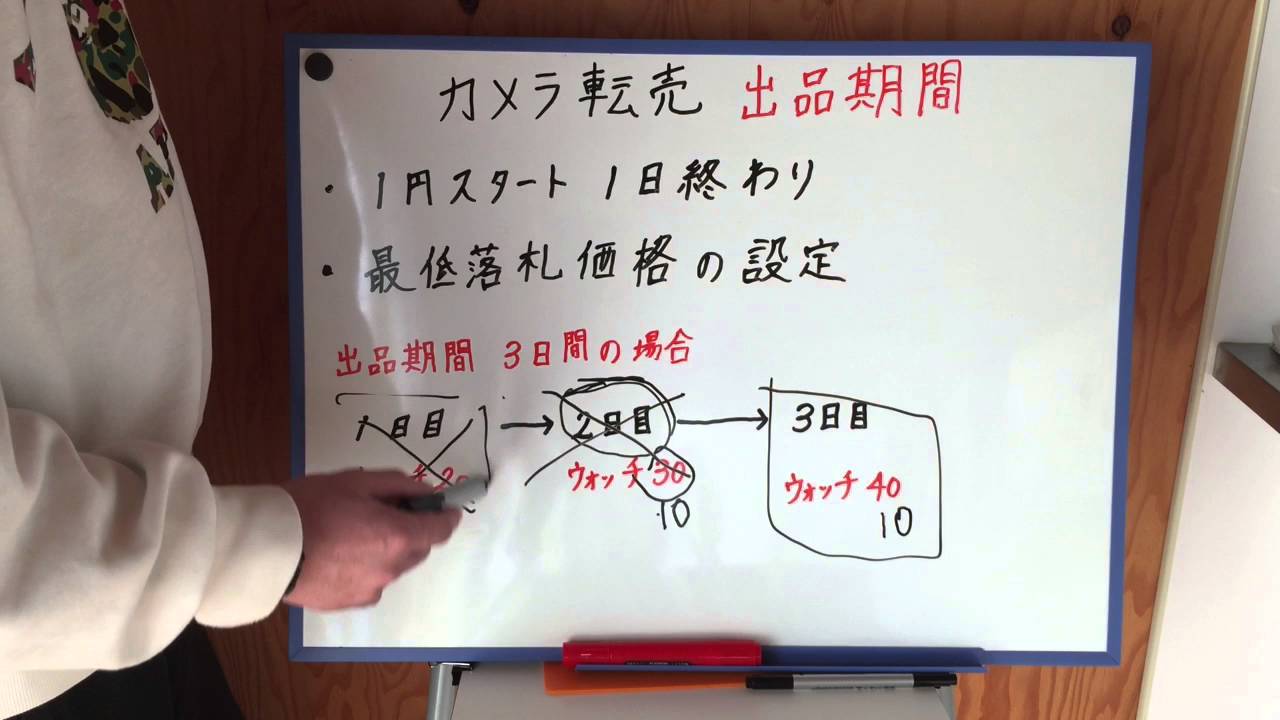 カメラ転売 出品期間
・1円スタート 1日終わり
・最低落札価格の設定
出品期間 3日間の場合
1日目 → 2日目 → 3日目
ウォッチ 30 ウォッチ 40
10 10